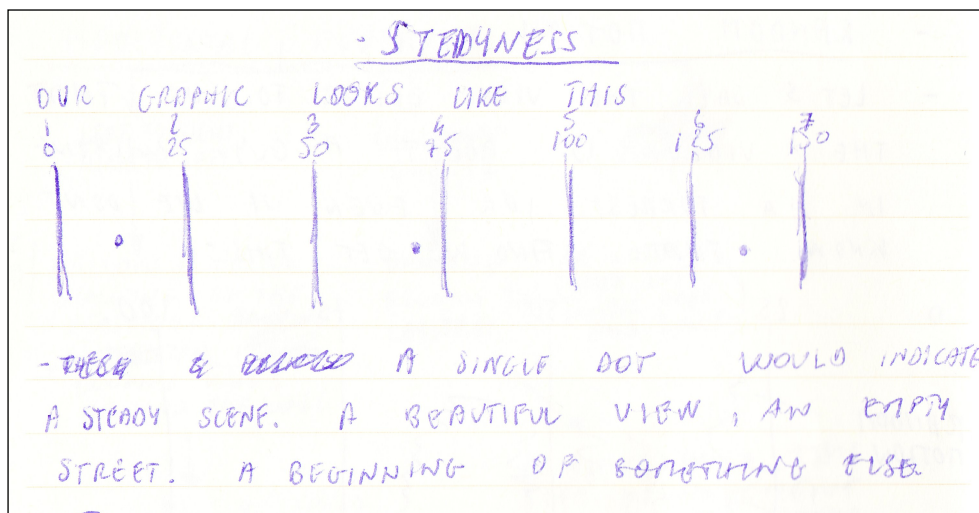 - STEDYNESS
OUR GRAPHIC LOOKS LIKE THIS
1 2 3 4 5 6 7
0 25 50 75 100 125 150
- A SINGLE DOT WOULD INDICATE
A STEADY SCENE. A BEAUTIFUL VIEW, AN EMPTY
STREET. A BEGINNING OF SOMETHING ELSE